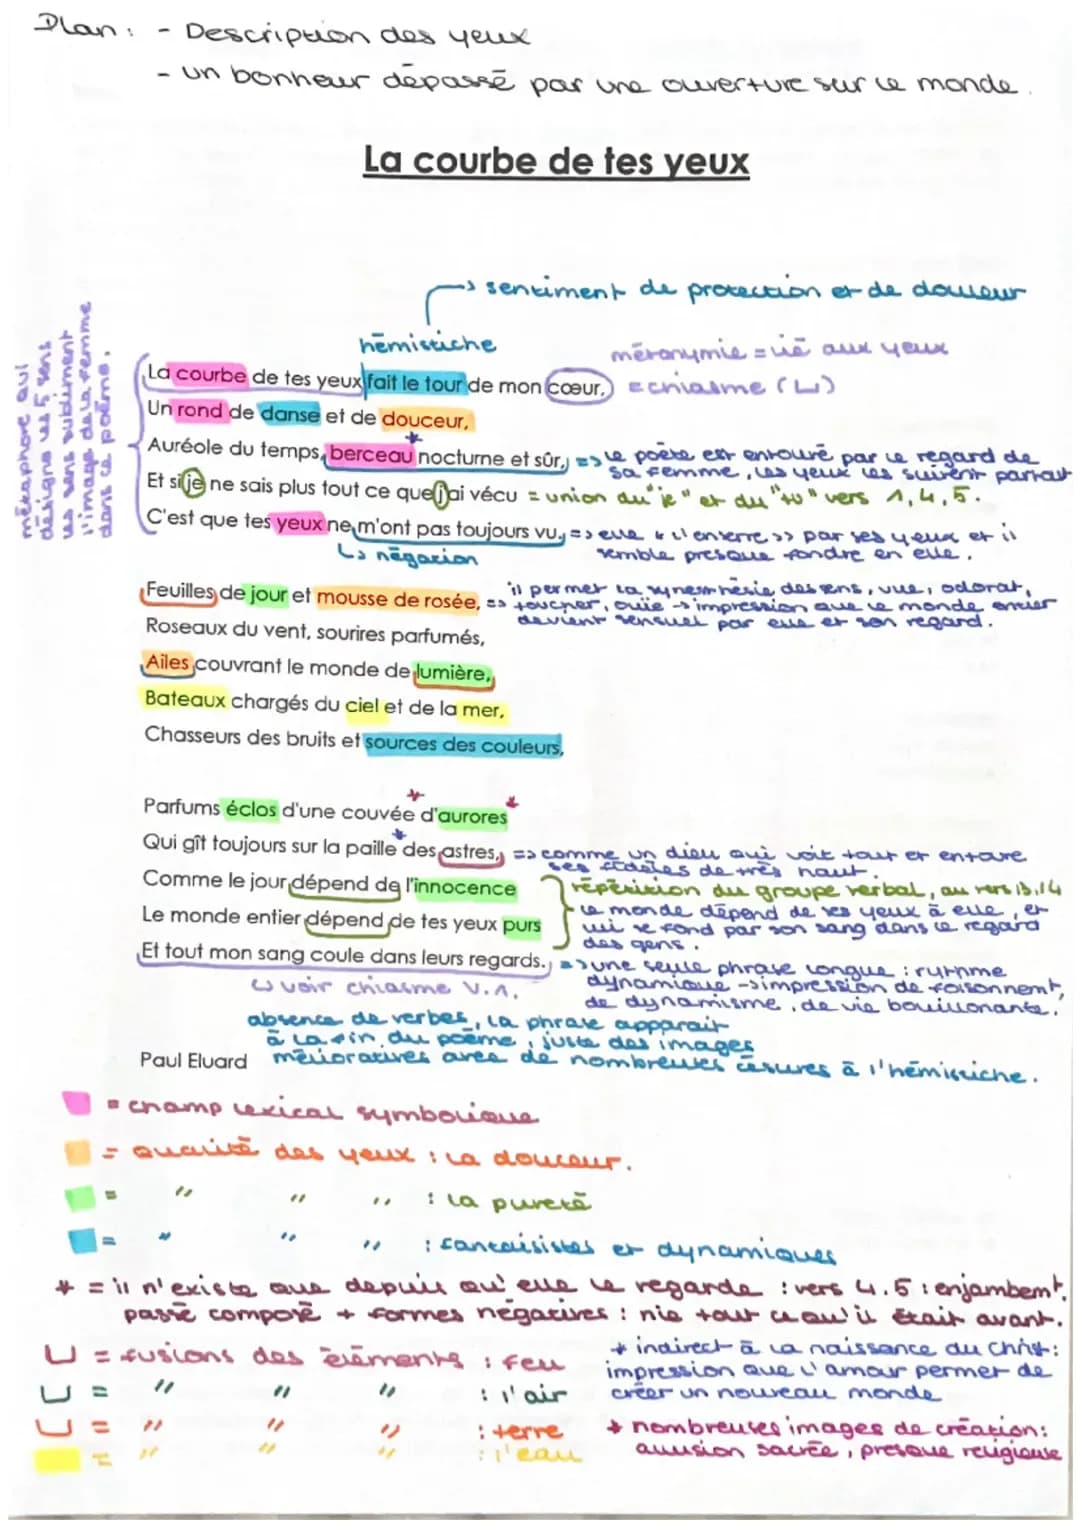 Plan : - Description des yeux
- un bonheur dépassé par une ouverture sur le monde.
La courbe de tes yeux
-> sentiment de protection et de douceur
hémistiche
méronymie = lié aux yeux
La courbe de tes yeux fait le tour de mon cœur, = chiasme
Un rond de danse et de douceur,
Auréole du temps, berceau nocturne et sûr, => le poète est entouré par le regard de
sa femme, les yeux les suivent partout
Et si je ne sais plus tout ce que j'ai vécu = union du "je" et du "tu" vers 1,4,5.
C'est que tes yeux ne m'ont pas toujours vu. => elle « l'enserre » par ses yeux et il
semble presque fondre en elle.
↳ négation
métaphore qui
désigne les 5 sens
les sens subliment
l'image de la femme
dans ce poème.
Feuilles de jour et mousse de rosée, => il permet la synesthésie des sens, vue, odorat,
toucher, ouie -> impression que le monde entier
devient sensuel par elle et son regard.
Roseaux du vent, sourires parfumés,
Ailes couvrant le monde de lumière,
Bateaux chargés du ciel et de la mer,
Chasseurs des bruits et sources des couleurs,
Parfums éclos d'une couvée d'aurores
Qui gît toujours sur la paille des astres, => comme un dieu qui voit tout et entoure
ses fidèles de très haut.
Comme le jour dépend de l'innocence
répétition du groupe verbal, au vers 13,14
Le monde entier dépend de tes yeux purs
le monde dépend de ses yeux à elle, et
lui se fond par son sang dans le regard
des gens.
Et tout mon sang coule dans leurs regards. => une seule phrase longue : rythme
dynamique -> impression de foisonnement,
de dynamisme, de vie bouillonante.
↳ voir chiasme V.1.
absence de verbes, la phrase apparait
à la fin du poème, juste des images
mélioratives avec de nombreuses césures à l'hémistiche.
Paul Eluard
= champ lexical symbolique
= qualité des yeux : la douceur.
= " " " : la pureté
= " " " : fantaisistes et dynamiques
* = il n'existe que depuis qu'elle le regarde : vers 4.5 : enjambemt.
passé composé + formes négatives : nie tout ce qu'il était avant.
= fusions des éléments : feu
= " " " : l'air
= " " " : terre
= " " " : l'eau
* indirect à la naissance du Christ :
impression que l'amour permet de
créer un nouveau monde
* nombreuses images de création :
allusion sacrée, presque religieuse